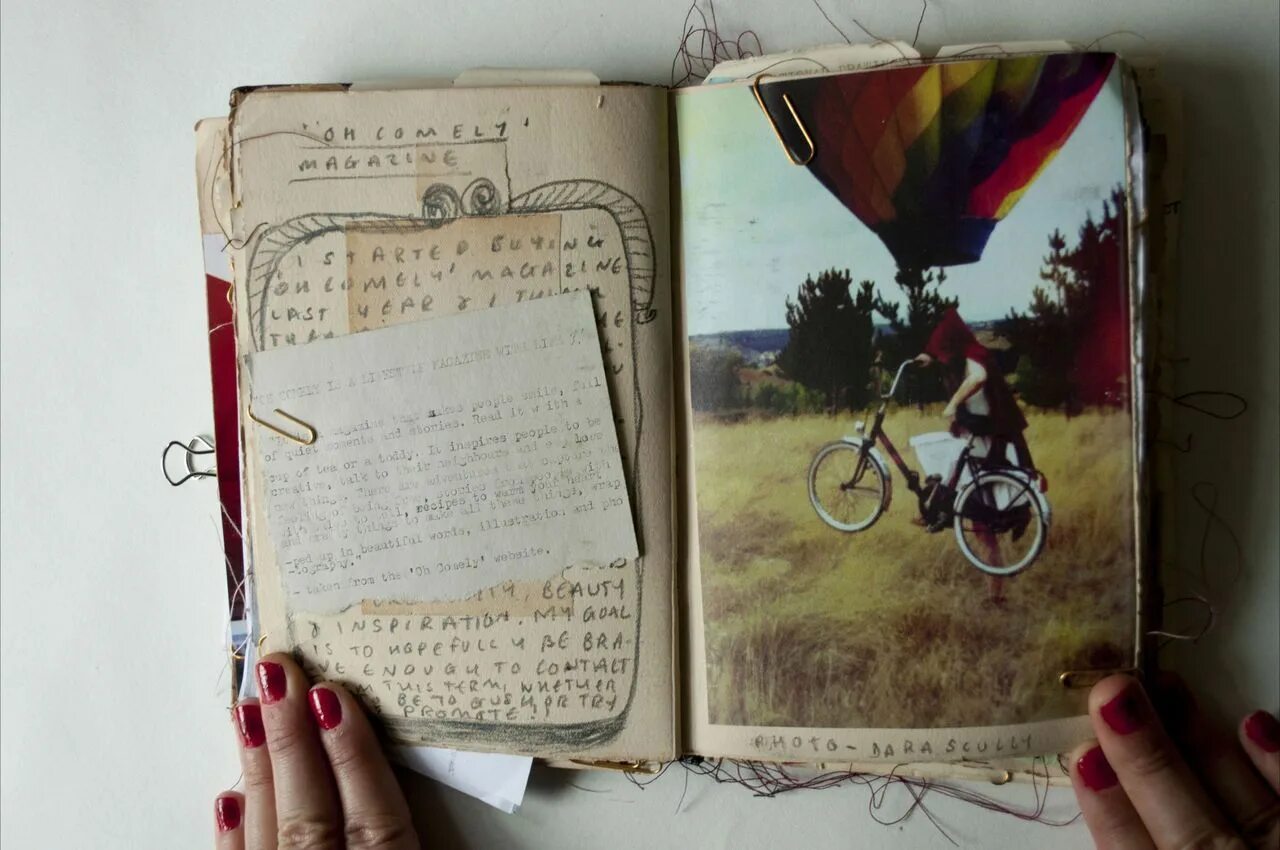 "OH COMELY'
MAGAZINE
I STARTED BUYING
'OH COMELY' MAGAZINE
LAST YEAR & I THINK
OH COMELY IS A LIFESTYLE MAGAZINE WITH
magazine that makes people smile, full
of quiet moments and stories. Read it with a
cup of tea or a toddy. It inspires people to be
creative, talk to their neighbours and explore
new things. There are adventures that capture the
feeling of being free, stories from people with
recipes to warm your heart
and crafty things to make all these things, wrap
-ped up in beautiful words, illustration and pho
-tography."
- taken from the 'Oh Comely' website.
BEAUTY
& INSPIRATION. MY GOAL
IS TO HOPEFULLY BE BRA-
VE ENOUGH TO CONTACT
THIS TERM, WHETHER
BE TO GUSH, OR TRY
PROMOTE!
PHOTO - DARA SCULLY